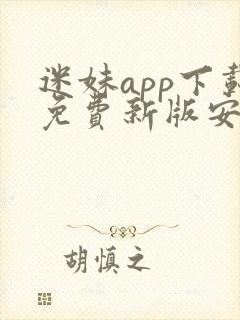 迷妹app下载
免费新版安
胡慎之